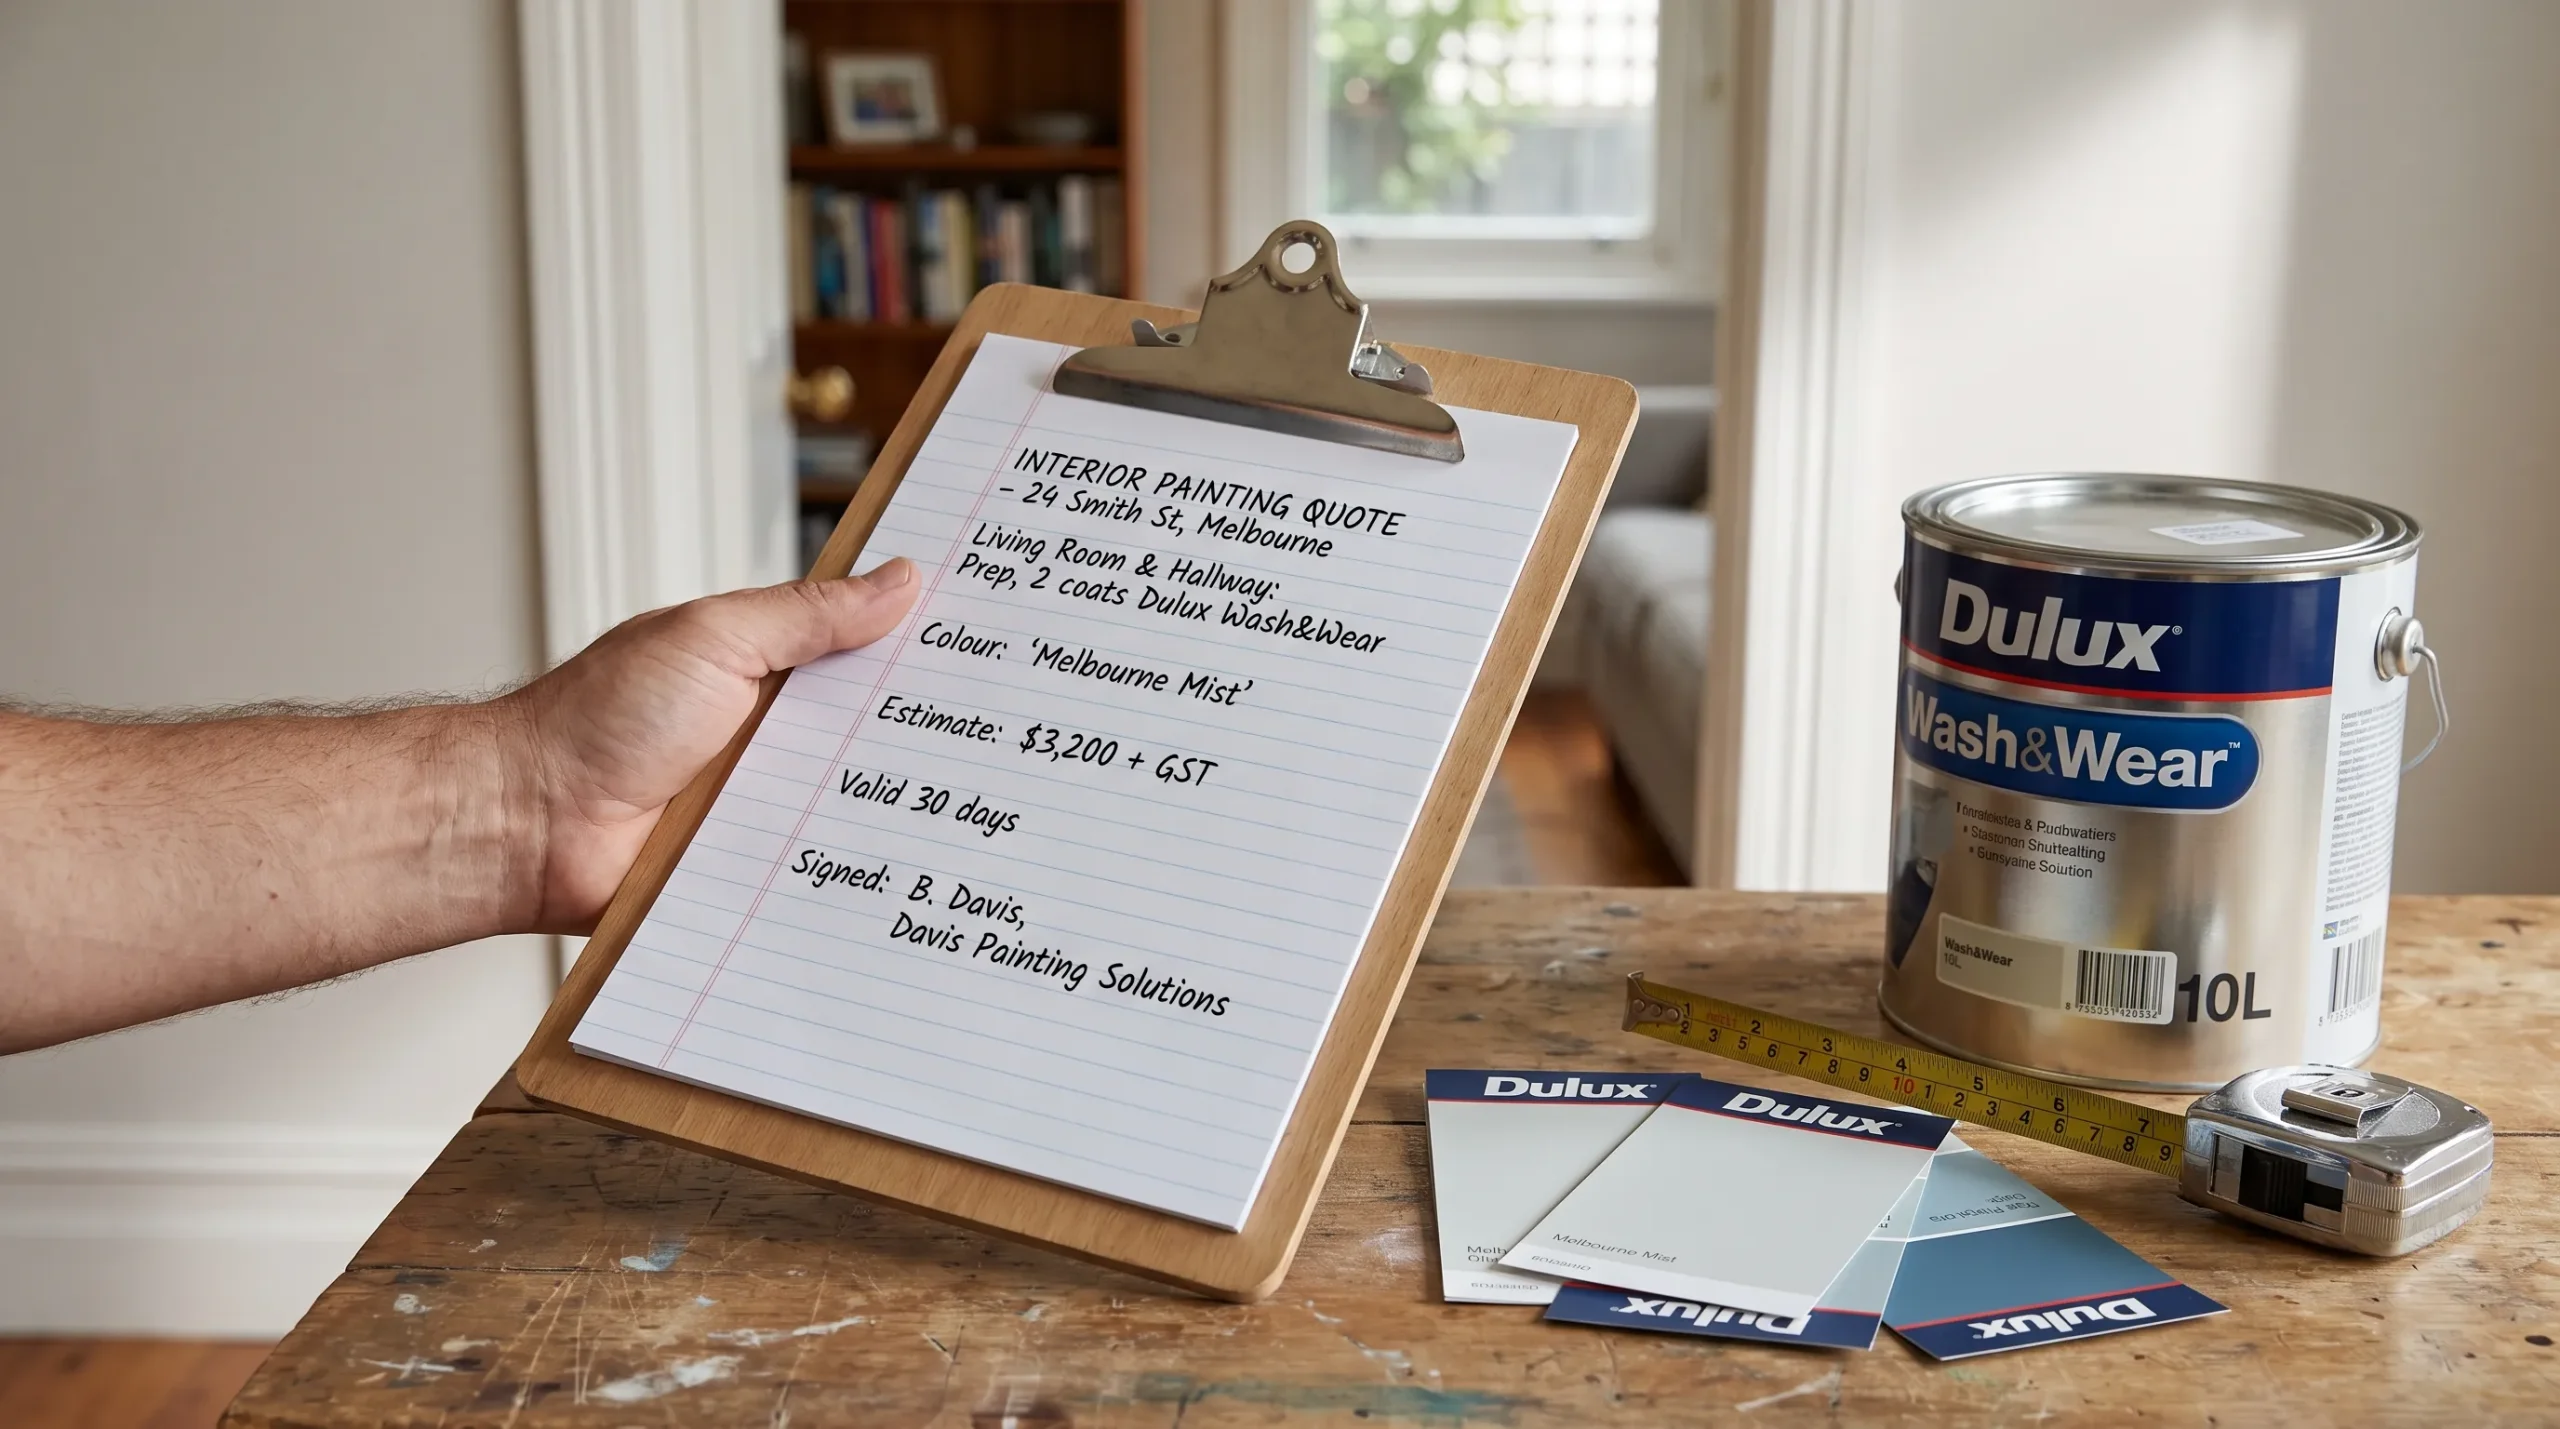 INTERIOR PAINTING QUOTE
– 24 Smith St, Melbourne
Living Room & Hallway:
Prep, 2 coats Dulux Wash&Wear
Colour: ‘Melbourne Mist’
Estimate: $3,200 + GST
Valid 30 days
Signed: B. Davis,
Davis Painting Solutions
Dulux®
Wash&Wear™
Solution
Wash&Wear
10L
8 755051 420532
10L
1 2 3 4 5 6 7
2 3 5 6 7 8 9 10 1 2 3 4 6 7 8 9
Dulux
Dulux
Melbourne Mist
Dulux
Dulux